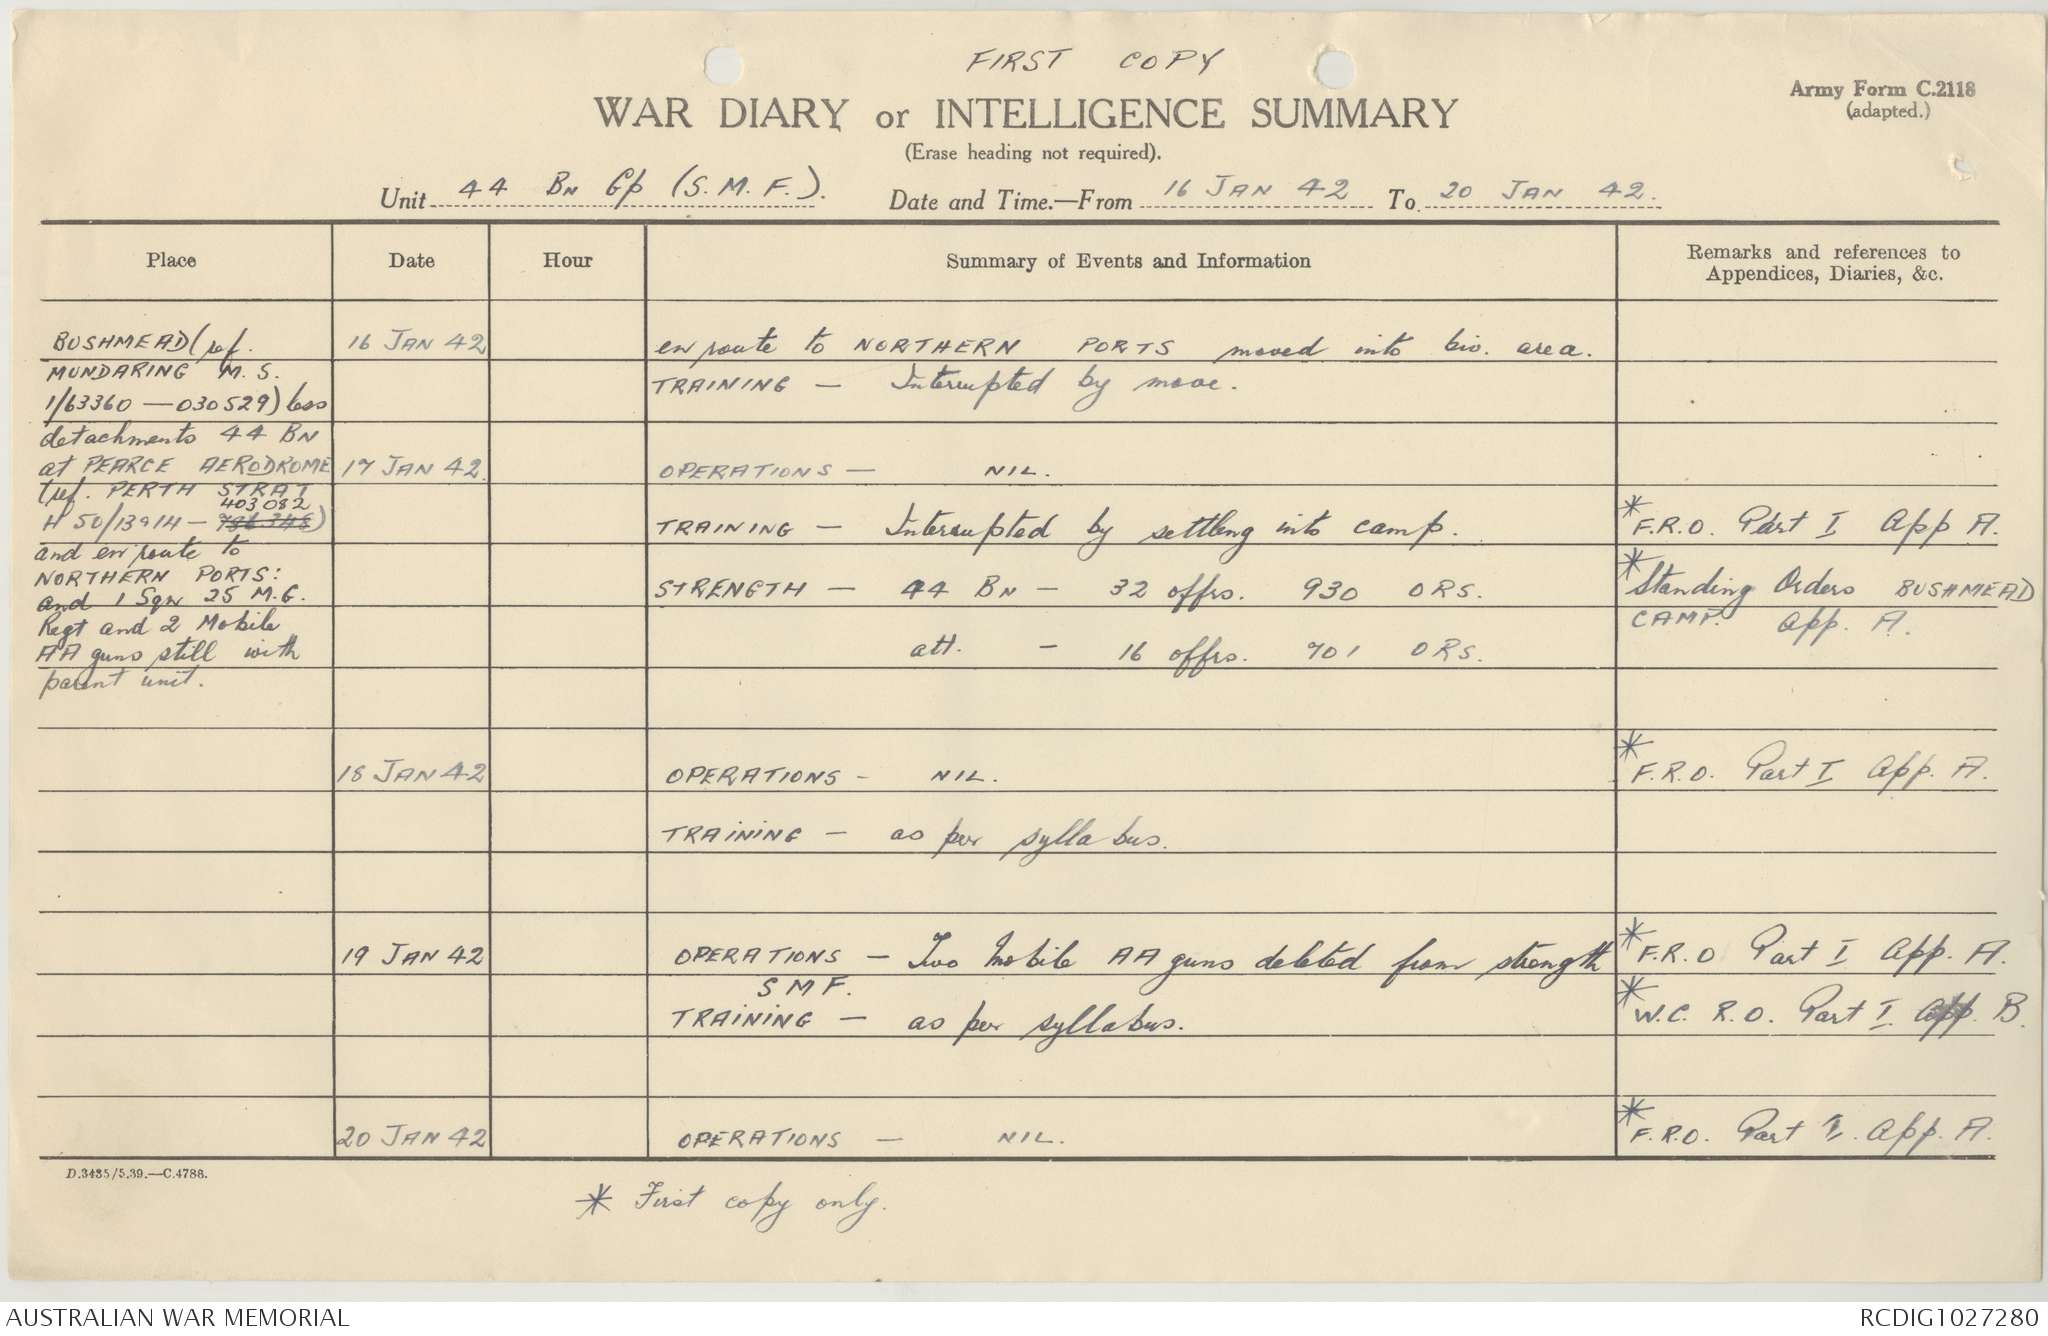 FIRST COPY
Army Form C.2118
(adapted.)
WAR DIARY or INTELLIGENCE SUMMARY
(Erase heading not required).
Unit 44 BN Gp (S.M.F.). Date and Time.—From 16 JAN 42 To 20 JAN 42.
Place Date Hour Summary of Events and Information Remarks and references to
Appendices, Diaries, &c.
BUSHMEAD (ref.
MUNDARING M.S.
1/63360 — 030529) less
detachments 44 BN
at PEARCE AERODROME
(ref. PERTH STRAT
403082
H 50/13914 -
and en route to
NORTHERN PORTS:
and 1 Sqn 25 M.G.
Regt and 2 Mobile
AA guns still with
parent unit.
16 JAN 42 en route to NORTHERN PORTS moved into biv. area.
TRAINING — Interrupted by move.
17 JAN 42 OPERATIONS — NIL.
TRAINING — Interrupted by settling into camp. * F.R.O. Part I App A.
STRENGTH — 44 BN — 32 offrs. 930 ORS. * Standing Orders BUSHMEAD
CAMP. App. A.
att. — 16 offrs. 701 ORS.
18 JAN 42 OPERATIONS - NIL. * F.R.O. Part I App. A.
TRAINING — as per syllabus.
19 JAN 42 OPERATIONS — Two Mobile AA guns deleted from strength * F.R.O Part I App. A.
SMF.
TRAINING — as per syllabus. * W.C. R.O. Part I App. B.
20 JAN 42 OPERATIONS — NIL. * F.R.O. Part I. App. A.
D.3435/5.39.—C.4788.
* First copy only.
AUSTRALIAN WAR MEMORIAL
RCDIG1027280